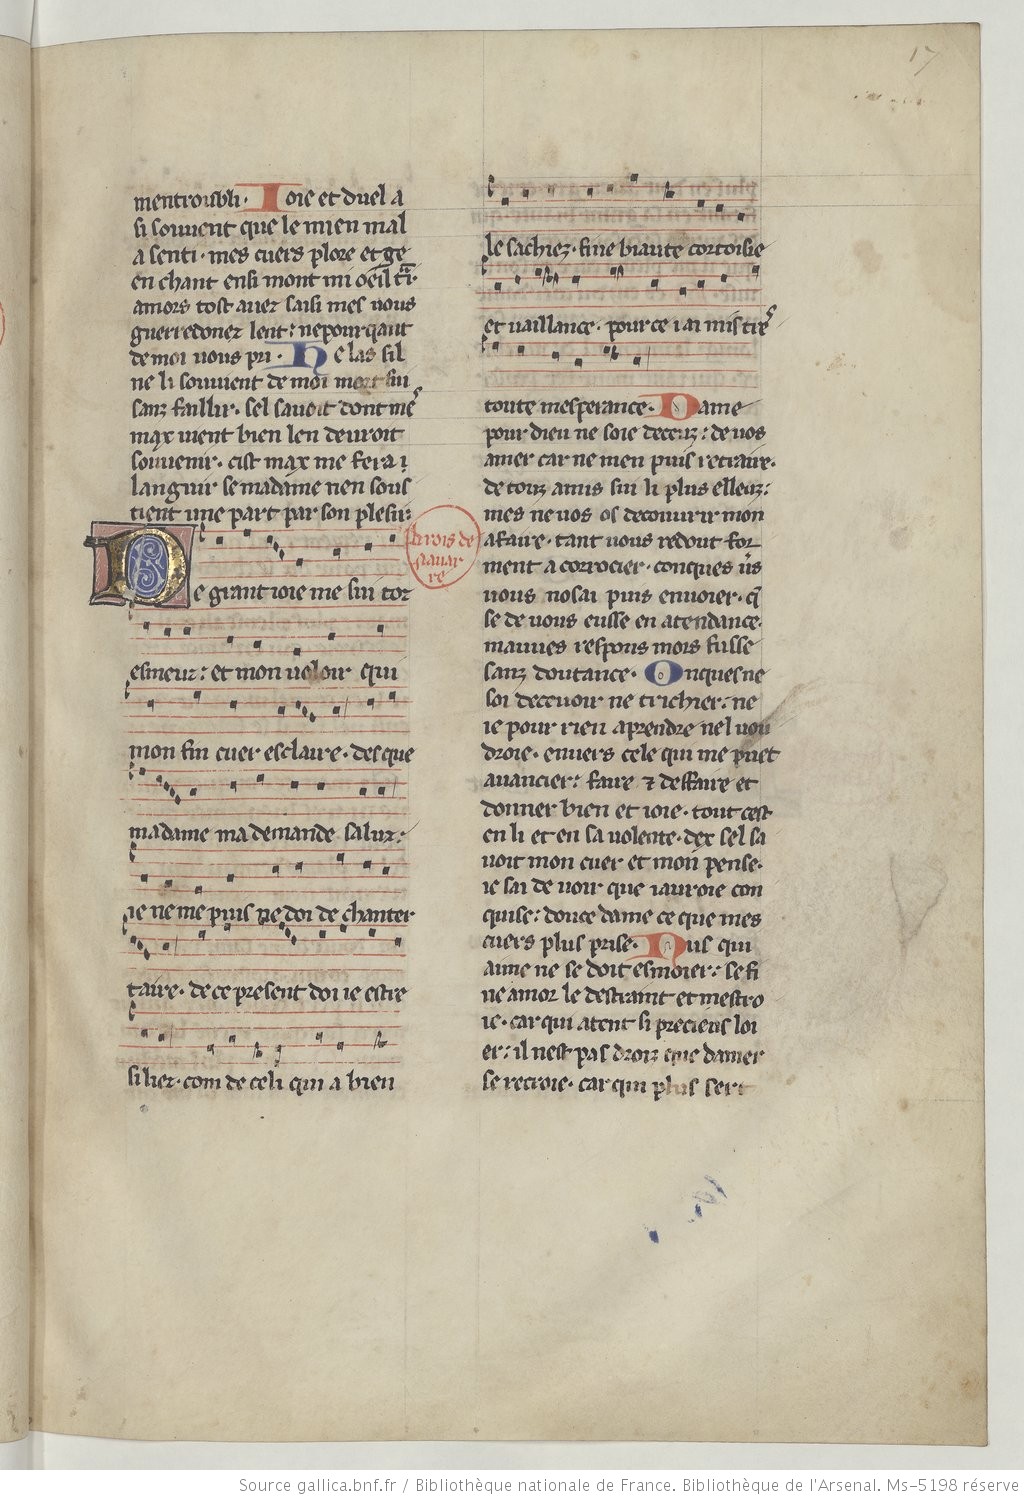 17
mentroubli· Ioie et duel a
si souuent que le mien mal
a senti· mes cuers plore et ge
en chant ensi mont mi oeil
amors tost auez saisi mes uous
guerredonez lent: nepourqant
de moi uous pri· Helas sil
ne li souuient de moi mort sui
sanz faillir· sel sauoit dont
max uient bien len deuroit
souuenir· cist max me fera
languir se madame rien sous
tient une part par son plesir:
li rois de
nauar
re
De grant ioie me sui toz
esmeuz: et mon uoloir qui
mon fin cuer esclaire· des que
madame ma demande saluz:
ie ne me puis ne doi de chanter
taire· de ce present doi ie estre
si liez· com de celi qui a bien
le sachiez· fine biaute cortoisie
et uaillance· por ce i ai mis
toute mesperance· Dame
pour dieu ne soie deceuz: de uos
amer car ne men puis retraire·
de touz amis sui li plus esleuz:
mes ne uos os decouurir mon
afaire· tant uous redout for
ment a corrocier· conques
uous nosai puis enuoier·
se de uous eusse en atendance·
mauues respons mors fusse
sanz doutance· Onques ne
soi deceuoir ne trichier: ne
ie pour rien aprendre nel uou
droie· enuers cele qui me puet
auancier: faire ⁊ deffaire et
donner bien et ioie· tout cest
en li et en sa uolente· dex sel sa
uoit mon cuer et mon pense·
ie sai de uoir que iauroie con
quise: douce dame ce que mes
cuers plus prise· Nus qui
aime ne se doit esmoier: se fi
ne amor le destraint et mestro
ie· car qui atent si precieus loi
er: il nest pas droiz que damer
se recroie· car qui plus sert
Source gallica.bnf.fr / Bibliothèque nationale de France. Bibliothèque de l'Arsenal. Ms-5198 réserve